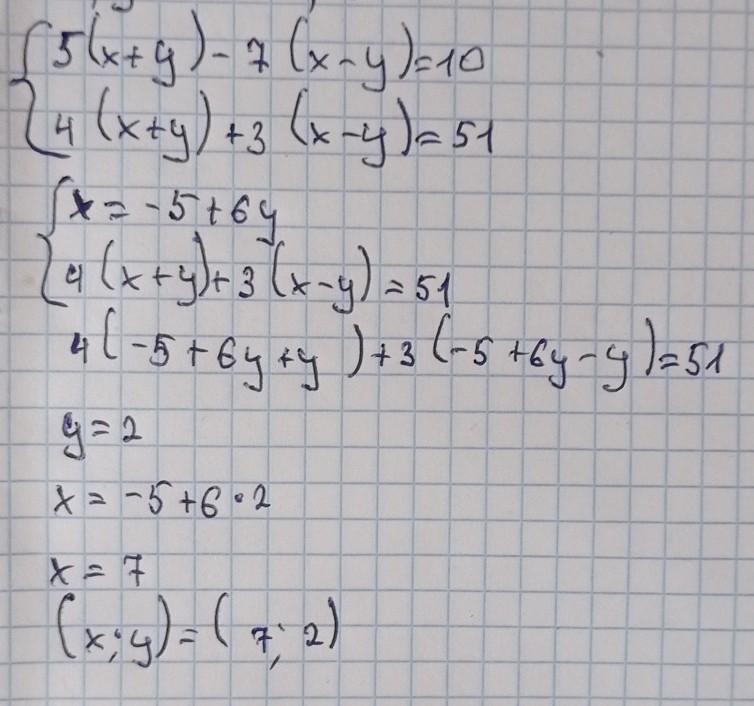 5(x+y)-7(x-y)=10
4(x+y)+3(x-y)=51
x=-5+6y
4(x+y)+3(x-y)=51
4(-5+6y+y)+3(-5+6y-y)=51
y=2
x=-5+6·2
x=7
(x;y)=(7;2)